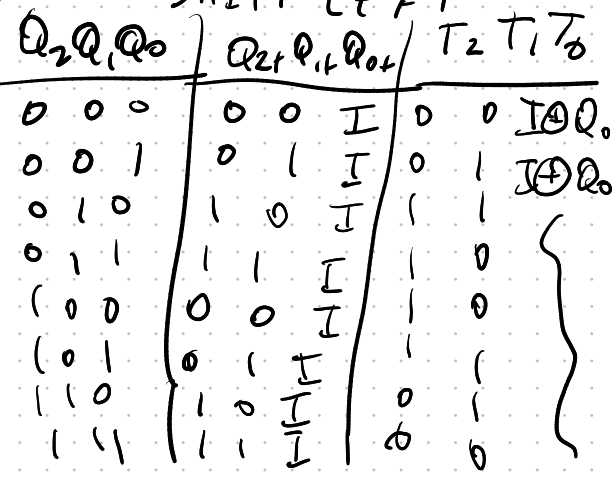 Shift left
Q₂ Q₁ Q₀ Q₂₊ Q₁₊ Q₀₊ T₂ T₁ T₀
0 0 0 0 0 I 0 0 I⊕Q₀
0 0 1 0 1 I 0 1 I⊕Q₀
0 1 0 1 0 I 1 1
0 1 1 1 1 I 1 0
1 0 0 0 0 I 1 0
1 0 1 0 1 I 1 1
1 1 0 1 0 I 0 1
1 1 1 1 1 I 0 0